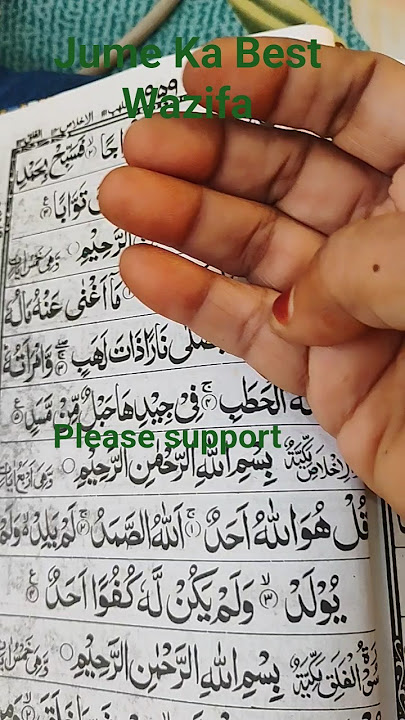 Jume Ka Best
Wazifa
۹۵۹
الاخلاص ۱۱۲
فَسَبِّحْ بِحَمْدِ
تَوَّابًا
الرَّحِيْمِ
مَاۤ اَغْنٰى عَنْهُ مَالُهٗ
نَارًا ذَاتَ لَهَبٍ وَّامْرَاَتُهٗ
الْحَطَبِ فِيْ جِيْدِهَا حَبْلٌ مِّنْ مَّسَدٍ
Please support
بِسْمِ اللّٰهِ الرَّحْمٰنِ الرَّحِيْمِ
قُلْ هُوَ اللّٰهُ اَحَدٌ ۚ ۱ اَللّٰهُ الصَّمَدُ ۚ ۲ لَمْ يَلِدْ ۙ وَلَمْ
يُوْلَدْ ۙ ۳ وَلَمْ يَكُنْ لَّهٗ كُفُوًا اَحَدٌ
سُوْرَةُ الْفَلَقِ مَكِّيَّةٌ بِسْمِ اللّٰهِ الرَّحْمٰنِ الرَّحِيْمِ